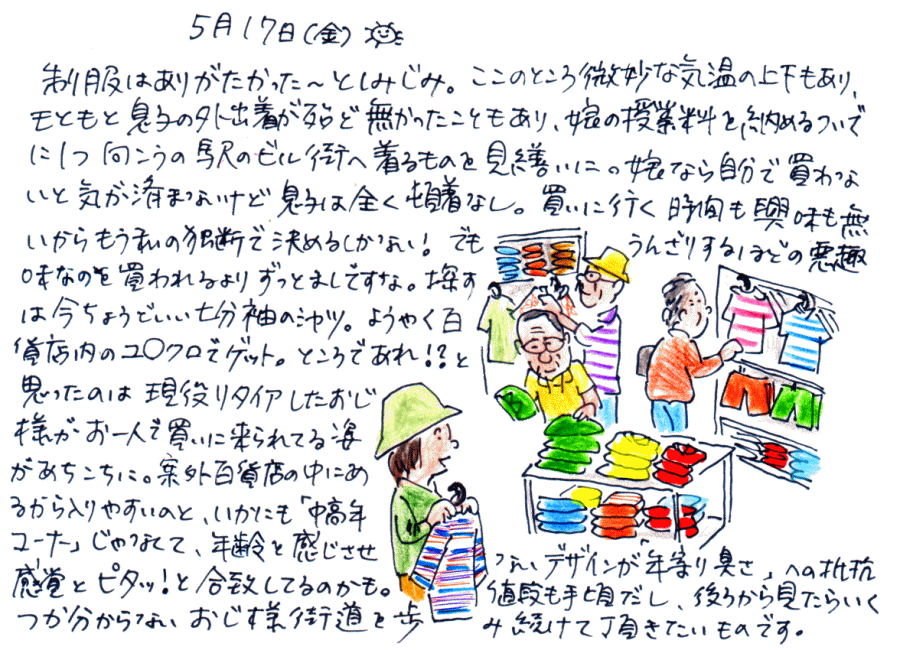 5月17日(金)
制服はありがたかった〜としみじみ。ここのところ微妙な気温の上下もあり、
もともと息子の外出着が殆ど無かったこともあり、娘の授業料を納めるついで
に1つ向こうの駅のビル街へ着るものを見繕いに。娘なら自分で買わな
いと気が済まないけど息子は全く頓着なし。買いに行く時間も興味も無
いからもう私の独断で決めるしかない! でも うんざりするほどの悪趣
味なのを買われるよりずっとましですな。探す
は今ちょうどいい七分袖のシャツ。ようやく百
貨店内のユ〇クロでゲット。ところであれ!?と
思ったのは現役リタイアしたおじ
様がお一人で買いに来られてる姿
があちこちに。案外百貨店の中にあ
るから入りやすいのと、いかにも「中高年
コーナー」じゃなくて、年齢を感じさせ ない、デザインが「年寄り臭さ」への抵抗
感覚とピタッ!と合致してるのかも。 値段も手頃だし、後ろから見たらいく
つか分からないおじ様街道を歩 み続けて頂きたいものです。